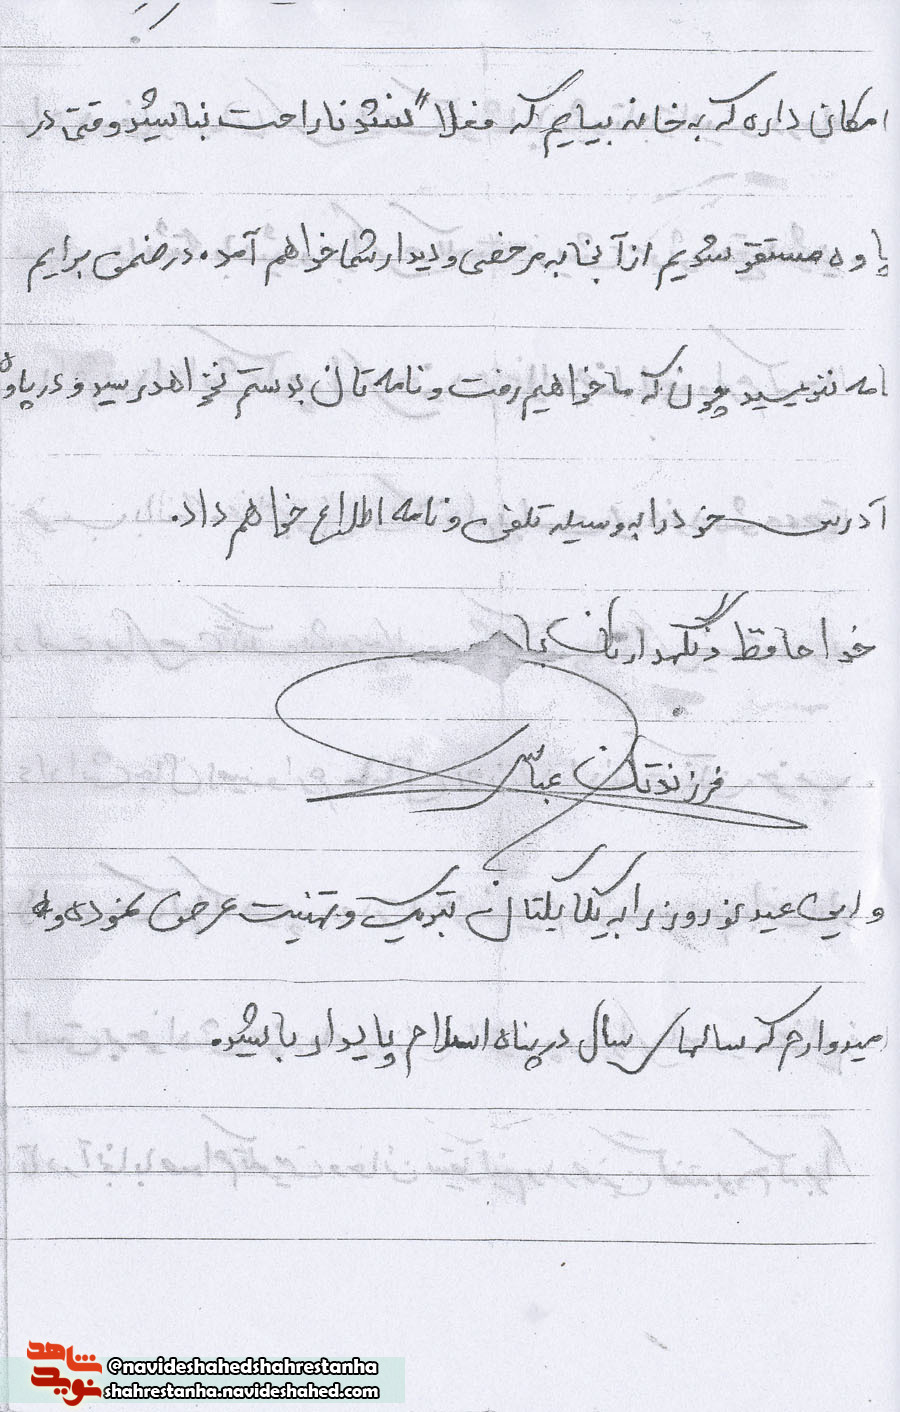 امکان داره که به خانه بیایم که فعلاً نشد ناراحت نباشید وقتی در
پاوه مستقر شویم از آنجا به مرخصی و دیدار شما خواهم آمد. در ضمن برایم
نامه ننویسید چون که ما خواهیم رفت و نامه تان بدستم نخواهد رسید و در پاوه
آدرس خود را به وسیله تلفن و نامه اطلاع خواهم داد.
خدا حافظ و نگهدارتان باد
فرزندتان عباس
و این عید نوروز را به یکایکتان تبریک و تهنیت عرض نموده و
امیدوارم که سالهای سال در پناه اسلام پایدار باشید.
شاهد
نوید
@navideshahedshahrestanha
shahrestanha.navideshahed.com